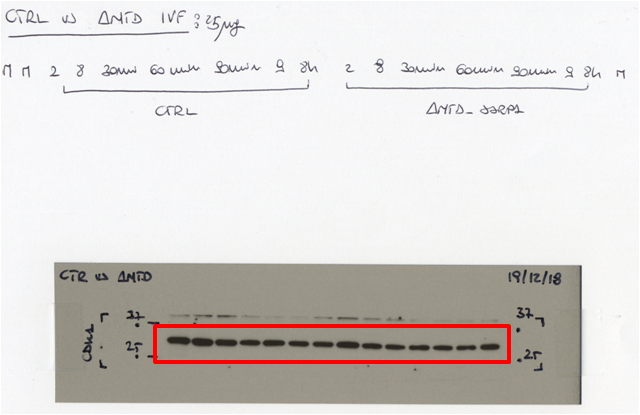 CTRL vs ΔNTD IVF: 25µg
M M 2 8 30min 60min 90min 2 8h 2 8 30min 60min 90min 2 8h M
CTRL ΔNTD_
CTR vs ΔNTD 19/12/18
37 37
25 25